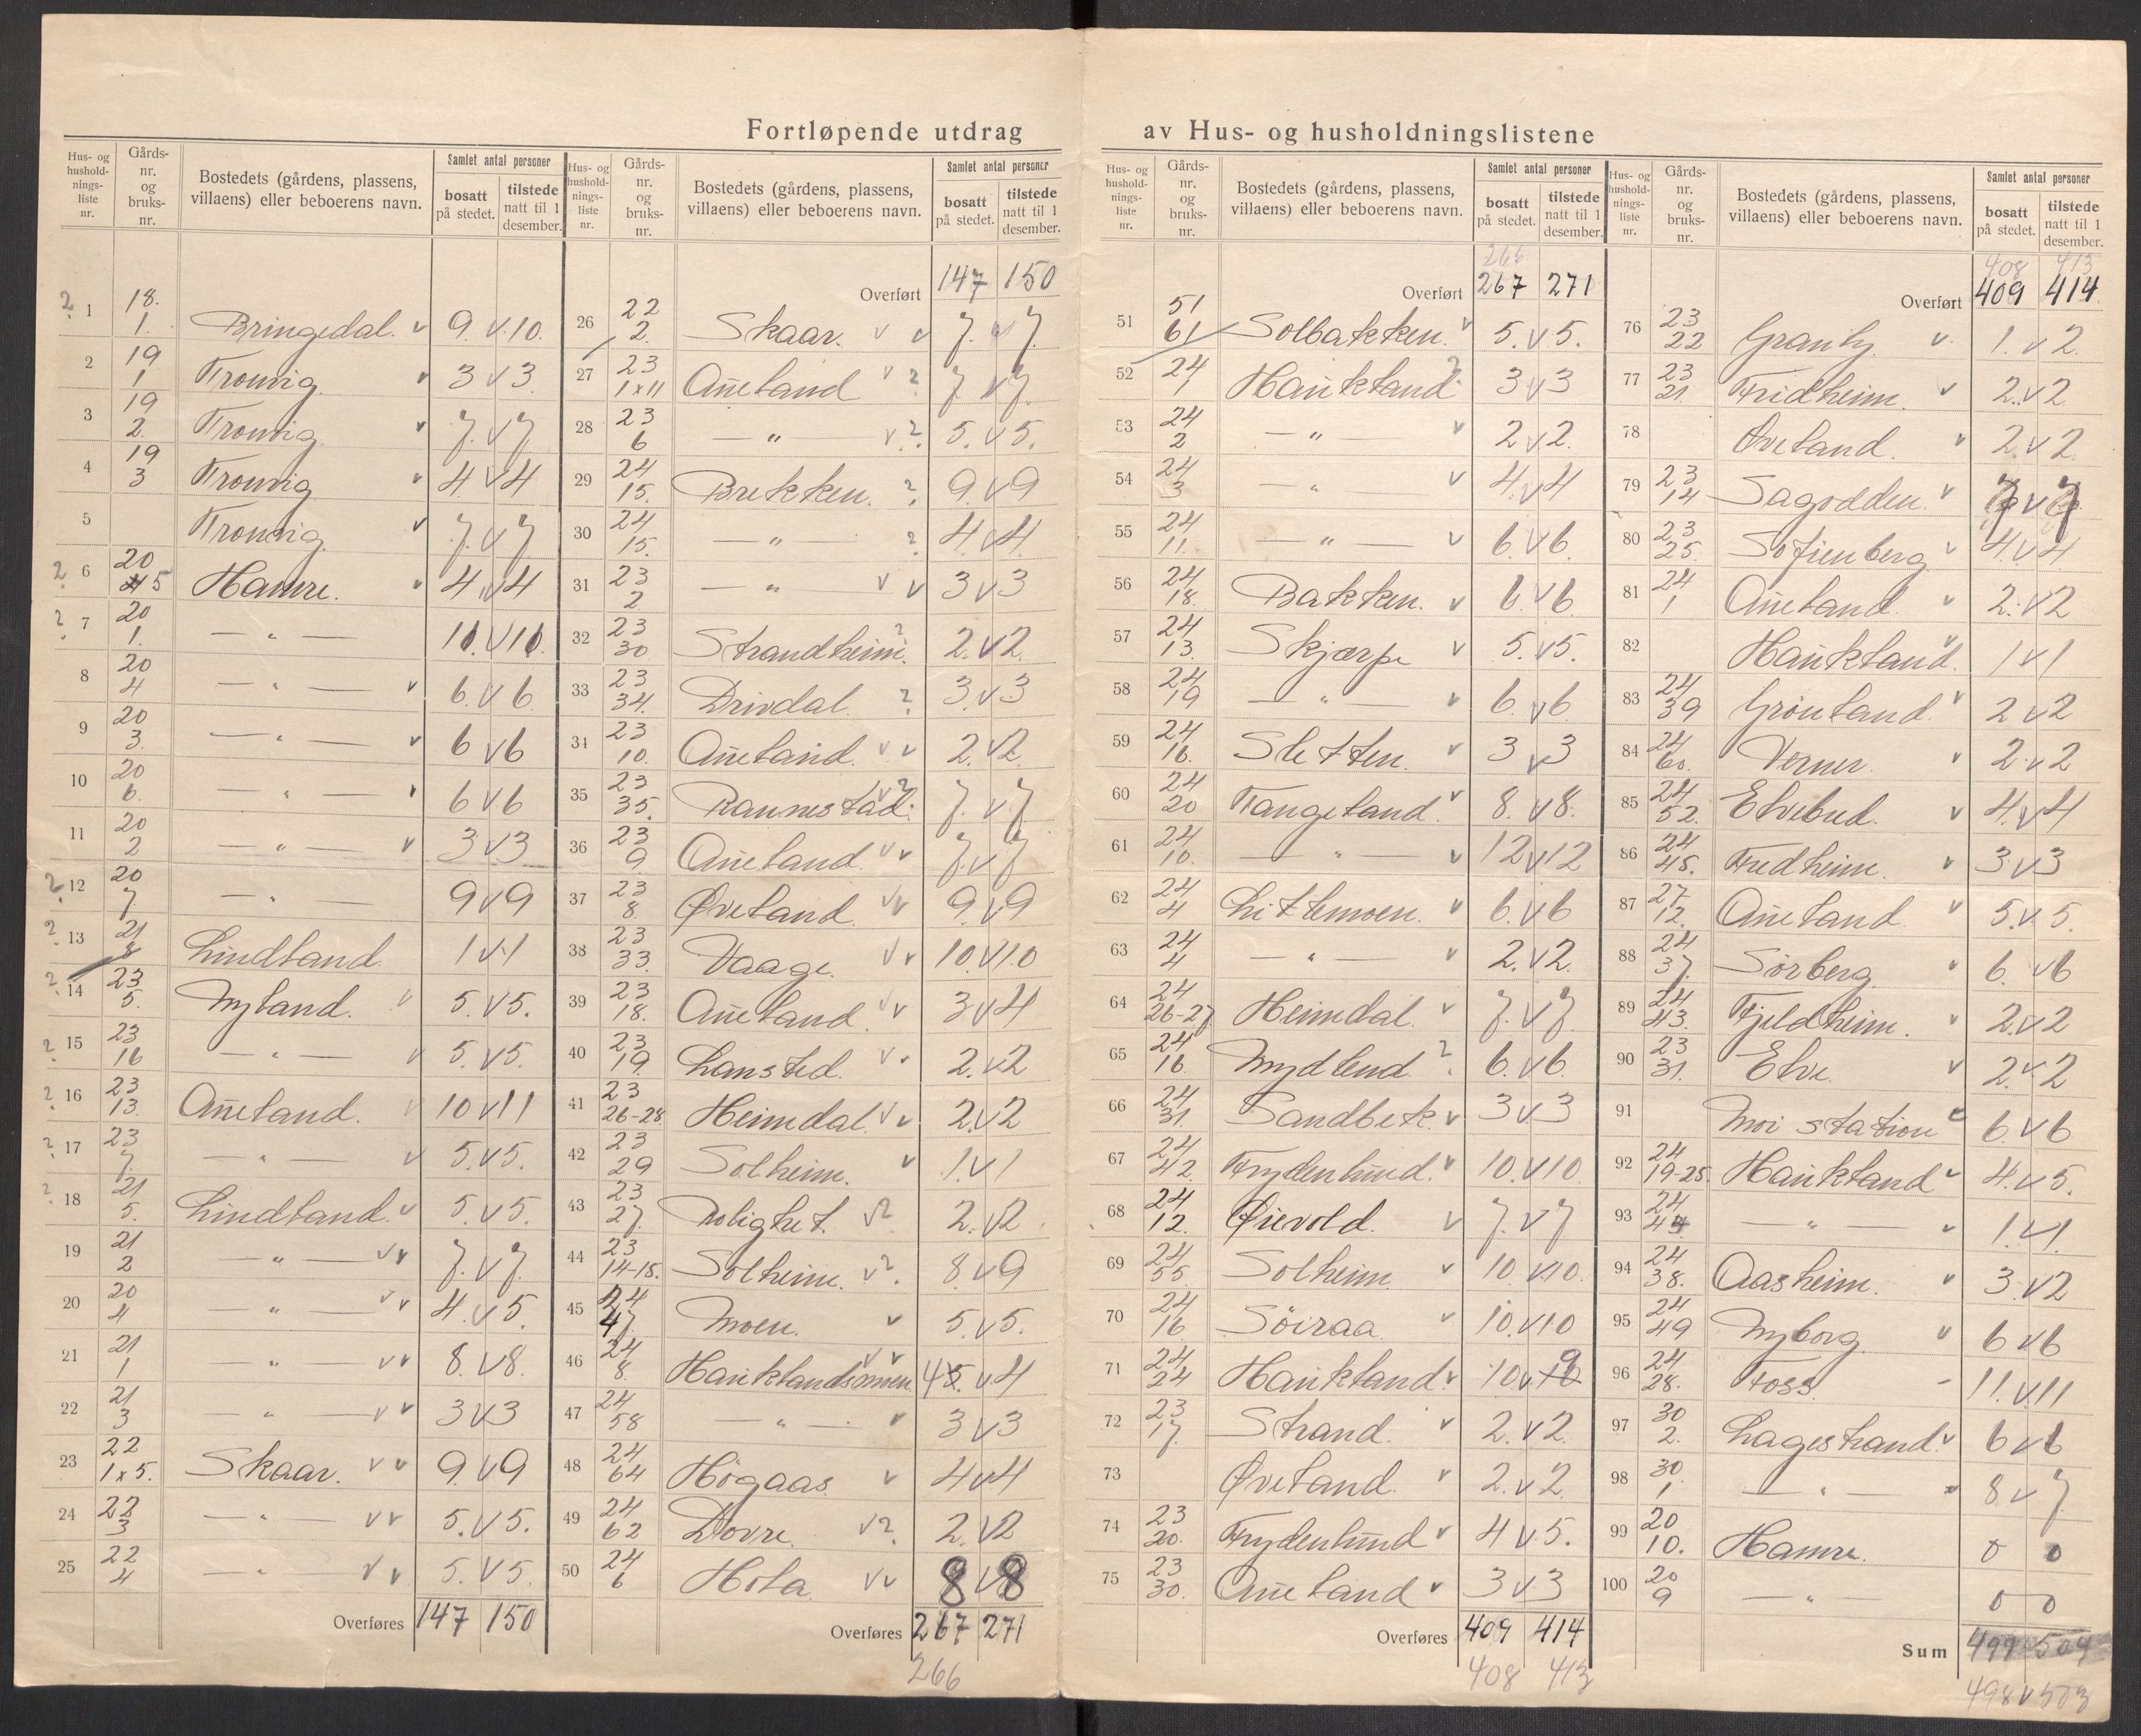 Fortløpende utdrag av Hus- og husholdningslistene
Hus- og hushold-nings-liste nr. Gårds-nr. og bruks-nr. Bostedets (gårdens, plassens, villaens) eller beboerens navn. Samlet antal personer bosatt på stedet. tilstede natt til 1 desember.
? 1 18. 1. Bringedal. v 9. v 10.
2 19 1 Tronvig v 3 v 3.
3 19 2. Tronvig. v 7. v 7
4 19 3 Tronvig v 4 v 4
5 Tronvig. v 7. v 7
? 6 20 5 Hamre. v 4 v 4
? 7 20 1. — " — 10. v 10.
8 20 4 — " — v 6. v 6
9 20 3. — " — v 6 v 6
10 20 6. — " — v 6 v 6
11 20 2 — " — v 3 v 3
? 12 20 7 — " 9 v 9
? 13 21 8 Lindland 1 v 1
? 14 23 5. Nyland. v 5. v 5.
? 15 23 16 — " — v 5. v 5.
? 16 23 13. Aueland. v 10 v 11
? 17 23 7. — " — v 5. v 5.
? 18 21 5. Lindland. v 5. v 5.
19 21 2 — " — v v 7. v 7.
20 20 4 — " — v v 4. v 5.
21 21 1 — " — v v 8. v 8.
22 21 3 — " — v v 3 v 3
23 22 1 x 5. Skaar. v v 9. v 9
24 22 3 — " — v v 5. v 5.
25 22 4 — " v v 5. v 5.
Overføres 147 150
Hus- og hushold-nings-liste nr. Gårds-nr. og bruks-nr. Bostedets (gårdens, plassens, villaens) eller beboerens navn. Samlet antal personer bosatt på stedet. tilstede natt til 1 desember.
Overført 147 150
26 22 2. Skaar. v v 7. v 7.
27 23 1 x 11 Aueland v ? 7. v 7.
28 23 6 — " — v ? 5. v 5.
29 24 15. Brekken. ? 9. v 9
30 24 15. — " — ? 4. v 4.
31 23 2 — " v v 3 v 3
32 23 30 Strandheim. ? 2. v 2.
33 23 34. Drivdal. ? 3. v 3
34 23 10. Aueland. v v 2. v 2.
35 23 35. Rannestad. v ? 7. v 7.
36 23 9 Aueland. v v 7. v 7
37 23 8. Øveland v v 9. v 9
38 23 33. Vaage. v v 10. v 10
39 23 18. Aueland. v v 3 v 4
40 23 19 Lansted. v v 2. v 2
41 23 26-28 Heimdal. v v 2. v 2
42 23 29 Solheim. v 1 v 1
43 23 27. Rolighet. v ? 2. v 2
44 23 14-15. Solheim. v ? 8 v 9
45 24 47. Moen. v 5. v 5.
46 24 8. Hauklandsmoen v v 4 5. v 4
47 24 58 — " — v 3 v 3
48 24 64 Høgaas v 4 v 4
49 24 62 Dovre. v ? 2. v 2
50 24 6 Hola v v 8 v 8
Overføres 267 271
266
Hus- og hushold-nings-liste nr. Gårds-nr. og bruks-nr. Bostedets (gårdens, plassens, villaens) eller beboerens navn. Samlet antal personer bosatt på stedet. tilstede natt til 1 desember.
266
Overført 267 271
51 51 61 Solbakken. v 5. v 5.
52 24 1 Haukland ? 3 v 3
53 24 2 — " — v 2 v 2.
54 24 3 — " v 4. v 4
55 24 11. — " — v 6. v 6.
56 24 18. Bakken. v 6. v 6
57 24 13. Skjærpe v 5. v 5.
58 24 19 — " — v 6. v 6.
59 24 16. Sletten. v 3 v 3
60 24 20 Tangeland. v 8. v 8.
61 24 10. — " — v 12 v 12
62 24 4 Littlemoen. v 6. v 6
63 24 4 — " — v 2. v 2.
64 24 26-27 Heimdal. v 7. v 7.
65 24 16. Mydland. ? 6. v 6.
66 24 31. Sandbek. v 3 v 3
67 24 42. Frydenlund. v 10. v 10.
68 24 12. Øievold. v 7. v 7
69 24 55. Solheim v 10. v 10.
70 24 16 Søiraa. v 10. v 10
71 24 24 Haukland. v 10 v 10 9
72 23 17. Strand. v 2. v 2.
73 Øveland. v 2. v 2.
74 23 20. Frydenlund v 4 v 5.
75 23 30. Aueland v 3 v 3
Overføres 409 414
408 413
Hus- og hushold-nings-liste nr. Gårds-nr. og bruks-nr. Bostedets (gårdens, plassens, villaens) eller beboerens navn. Samlet antal personer bosatt på stedet. tilstede natt til 1 desember.
408 413
Overført 409 414
76 23 22 Granly. v 1. v 2.
77 23 21. Fridheim. v 2. v 2.
78 Øveland. v 2. v 2
79 23 14 Sagodden. v 7 v 7
80 23 25. Sofienberg v 4. v 4
81 24 1 Aueland. v 2. v 2
82 Haukland. v 1 v 1
83 24 39 Grønland. v 2 v 2
84 24 60. Verner. v 2. v 2
85 24 52. Elvebud. v 4. v 4
86 24 45. Fredheim. v 3 v 3
87 27 12. Aueland v 5. v 5.
88 24 37. Sørberg v 6. v 6
89 24 43. Fjeldheim. v 2. v 2
90 23 31. Elve. v 2. v 2
91 Moi station v 6. v 6
92 24 19-25. Haukland v 4. v 5.
93 24 44 — " — v 1. v 1.
94 24 38. Aasheim. v 3. v 2
95 24 49 Nyborg v 6 v 6
96 24 28. Foss. - 11. v 11
97 30 2. Lagestrand. v 6 v 6
98 30. 1 — " — 8. v 7.
99 20 10. Hamre. 0 0
100 20 9 — " — 0 0
Sum 499 504
498 v 503